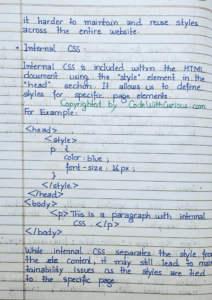 it harder to maintain and reuse styles
across the entire website.
• Internal CSS :
Internal CSS is included within the HTML
document using the "style" element in the
"head" section. It allows us to define
styles for specific page elements.
Copyrighted by CodeWithCurious.com
For Example:
<head>
<style>
p {
color: blue ;
font-size : 16px ;
}
</style>
</head>
<body>
<p> This is a paragraph with internal
CSS </p>
</body>
While internal CSS separates the style from
the content, it may still lead to main
tainability issues as the styles are tied
to the specific page.